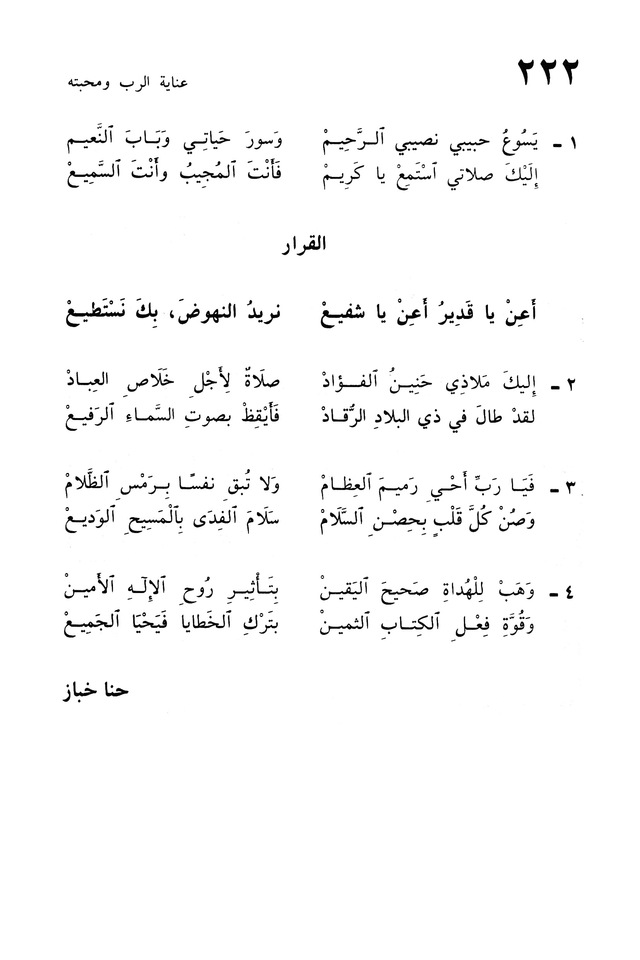 ٢٢٢
عناية الرب ومحبته
١ ـ يَسُوعُ حبيبي نصيبي ٱلـرَّحِيـمْ وَسورَ حَياتِـي وَبَـابَ ٱلنَّعيـم
إِلَيْكَ صلاتي ٱسْتَمِعْ يا كَرِيـمْ فَأَنْتَ ٱلمُجيبُ وأَنْتَ ٱلسَّميـعْ
القرار
أَعِنْ يا قَدِيرُ أَعِنْ يا شفيـعْ نريدُ النهوضَ، بِكَ نَسْتَطيـعْ
٢ ـ إِليكَ مَلاذِي حَنِيـنُ ٱلفـؤادْ صلَاةٌ لِأَجْلِ خَلَاصِ العِبـادْ
لقدْ طالَ في ذي البلادِ الرُّقـادْ فَأَيْقِظْ بصوتِ السَّماءِ ٱلرَفيـعْ
٣ ـ فَيَـا رَبِّ أَحْيِ رَميـمَ ٱلعِظَـامْ وَلَا تُبقِ نفسًـا بِـرَمْسِ ٱلظَّلَامْ
وَصُنْ كُلَّ قَلْبٍ بِحِصْـنِ ٱلسَّلَامْ سَلَامَ ٱلفِدَى بِٱلْمَسِيحِ ٱلوَديـعْ
٤ ـ وَهَبْ لِلْهُداةِ صَحيحَ ٱليَقيـنْ بِتَـأْثيـرِ رُوحِ ٱلإِلـٰهِ ٱلأَميـنْ
وَقُوَّةِ فِعْلِ ٱلكِتـابِ ٱلثميـنْ بتَرْكِ ٱلخَطايا فَيَحْيَا ٱلجَمِيـعْ
حنا خباز